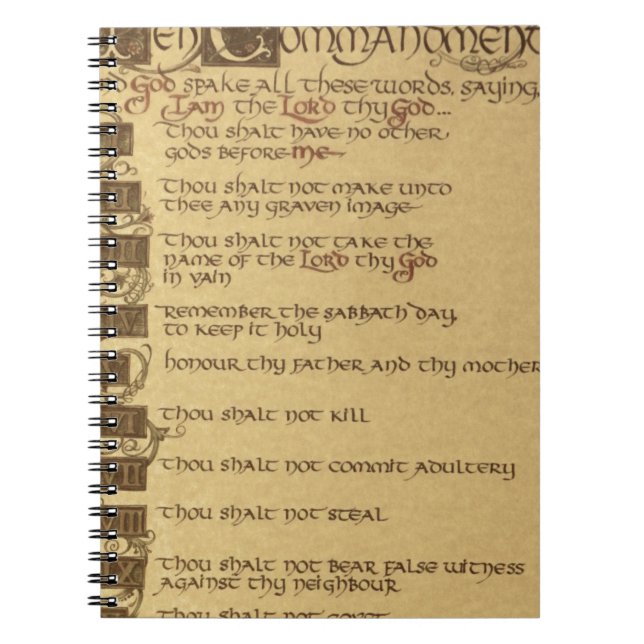 en Commandment
God spake all these words, saying,
I am the Lord thy God...
Thou shalt have no other
gods before me
II Thou shalt not make unto
thee any graven image
III Thou shalt not take the
name of the Lord thy God
in vain
V Remember the Sabbath day,
to keep it holy
V honour thy father and thy mother
VI Thou shalt not kill
VII Thou shalt not commit adultery
VIII Thou shalt not steal
IX Thou shalt not bear false witness
against thy neighbour
Thou shalt not covet